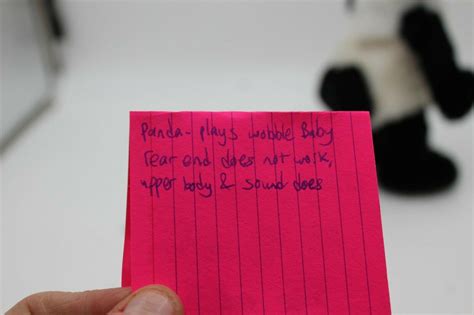 Panda - plays wobble Baby
rear end does not work,
upper body & sound does